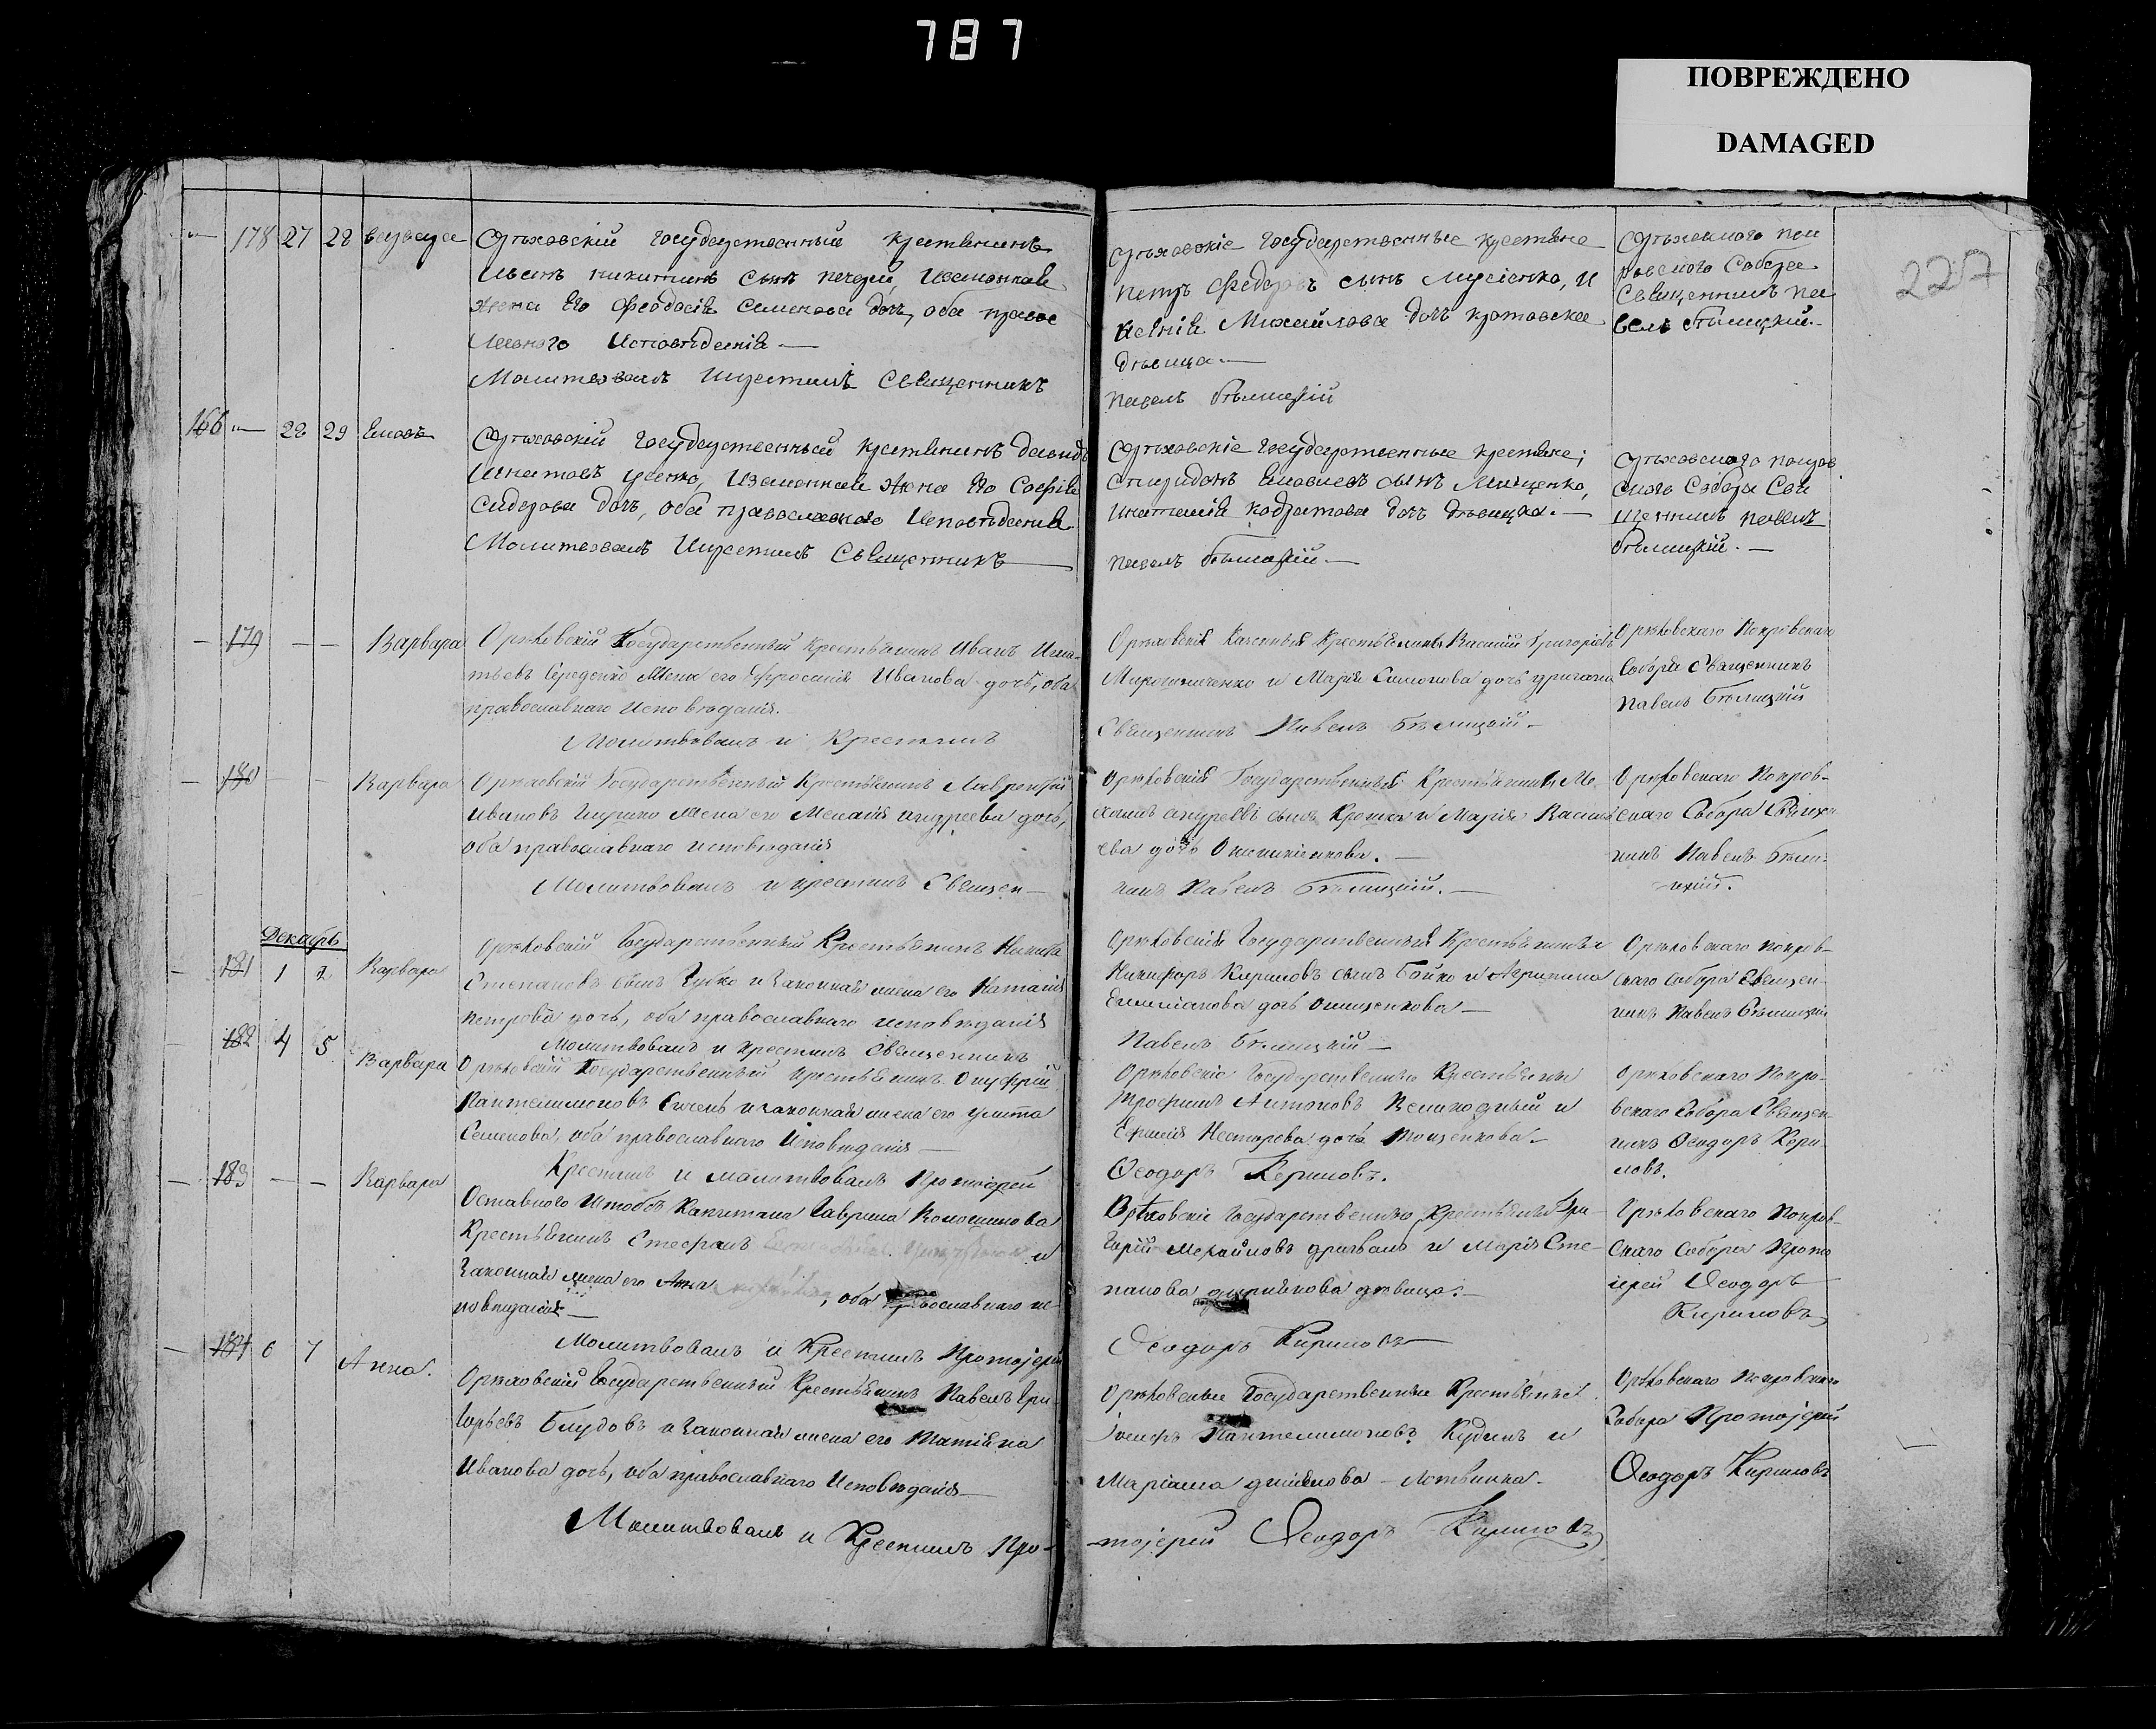 787
ПОВРЕЖДЕНО
DAMAGED
227
178 27 28 варвара
Орѣховскій государственный крестянинъ
Иванъ никитинъ сынъ
жена Его феодосія Семенова дочь, оба право
славнаго Исповѣданія —
Молитвовалъ Икрестилъ Священникъ
орѣховскіе государственные крестяне
петръ федоровъ сынъ Мусіенко, И
Михайлова дочь кротовская
дѣвица. —
павелъ бѣлицкій
Орѣховского пок
ровского Собора
Священникъ па
велъ бѣлицкій. —
166 — 28 29 Іяковъ
Орѣховскій государственный крестянинъ давидъ
Игнатовъ усенко, Изаконная жена Его Софія
Сидорова дочь, оба православнаго Исповѣданія
Молитвовалъ Икрестилъ Священникъ —
Орѣховскіе государственные крестяне;
спиридонъ сынъ Мищенко,
кодратова дочь дѣвица. —
павелъ бѣлицкій. —
орѣховского покров
ского Собора Свя
щенникъ павелъ
бѣлицкій. —
— 179 — — Варвара
Орѣховскій Государственный крестьянинъ Иванъ Игна-
тьевъ Середенко жена его Ефросинія Иванова дочь, оба
православнаго исповѣданія.
Молитвовалъ и крестилъ
Орѣховскія казенныя крестьянины Василій Григоріевъ
Мирошниченко и Марія Симонова дочь
Священникъ Павелъ Бѣлицкій —
Орѣховскаго Покровскаго
Собора Священникъ
Павелъ Бѣлицкій
— 180 — — Варвара
Орѣховскій Государственный Крестьянинъ Лаврентій
Ивановъ жена его Меланія андреева дочь,
оба православнаго исповѣданія
Молитвовалъ и крестилъ Священ —
Орѣховскія Государственныя Крестьянины
андреевъ сынъ Крошка и Марія Василі
ева дочь —
никъ Павелъ Бѣлицкій. —
Орѣховскаго Покров-
скаго Собора Священ
никъ Павелъ Бѣли-
цкій.
Декабрь
— 181 1 2 Варвара
Орѣховскій Государственный Крестьянинъ Никита
Степановъ сынъ Зубко и законная жена его Наталія
Петрова дочь, оба православнаго исповѣданія
Молитвовалъ и крестилъ Священникъ
Орѣховскія Государственныя Крестьянины
Никифоръ Кириловъ сынъ Бойко и Агрипина
Емилианова дочь Онищенкова —
Павелъ Бѣлицкій —
Орѣховскаго покров-
скаго собора Священ-
никъ Павелъ Бѣлицкій
182 4 5 Варвара
Орѣховскій Государственный крестьянинъ Онуфрій
Пантелимоновъ и законная жена его улита
Семенова, оба православнаго Исповѣданія —
Крестилъ и молитвовалъ Протоіерей
Орѣховскіе Государственные Крестьяны
Трофимъ Антоновъ Великодный и
Нестерова дочь —
Ѳеодоръ Кириловъ.
Орѣховскаго Покро-
вскаго Собора Священ-
никъ Ѳеодоръ Кири-
ловъ.
— 183 — — Варвара
Оставного Штабсъ Капитана Гаврила Волошинова
Крестьянинъ Стефанъ и
Законная жена его Анна, оба православнаго ис-
повѣданія —
Молитвовалъ и Крестилъ Протоіерей
Орѣховскіе Государственные Крестьяны Гри-
горій Михайловъ и Марія Сте-
панова дѣвица. —
Ѳеодоръ Кириловъ
Орѣховскаго Покров-
скаго Собора Прото
іерей Ѳеодоръ
Кириловъ
— 184 6 7 Анна.
Орѣховскій Государственный Крестьянинъ Павелъ Гри-
горьевъ Блудовъ и законная жена его Татіяна
Иванова дочь, оба православнаго Исповѣданія —
Молитвовалъ и Крестилъ Про-
Орѣховские Государственные Крестьяны
Іосифъ Пантелимоновъ Кудинъ и
Маріана —
-тоіерей Ѳеодоръ Кириловъ
Орѣховскаго Покровскаго
Собора Протоіерей
Ѳеодоръ Кириловъ